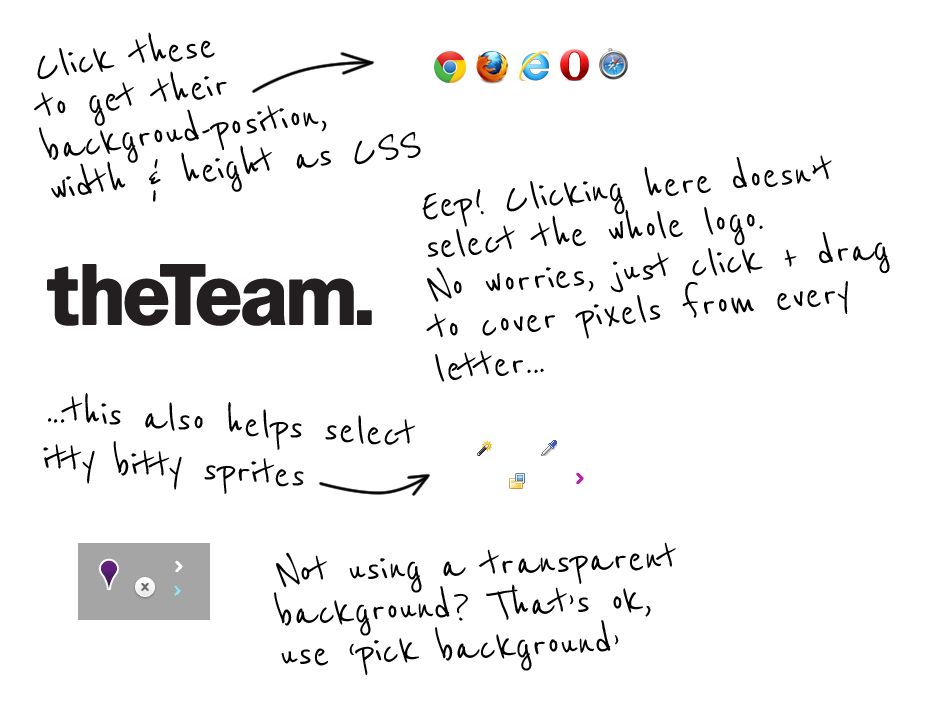 Click these
to get their
backgroud-position,
width & height as CSS
Eep! Clicking here doesn't
select the whole logo.
No worries, just click + drag
to cover pixels from every
letter...
theTeam.
...this also helps select
itty bitty sprites
Not using a transparent
background? That's ok,
use 'pick background'